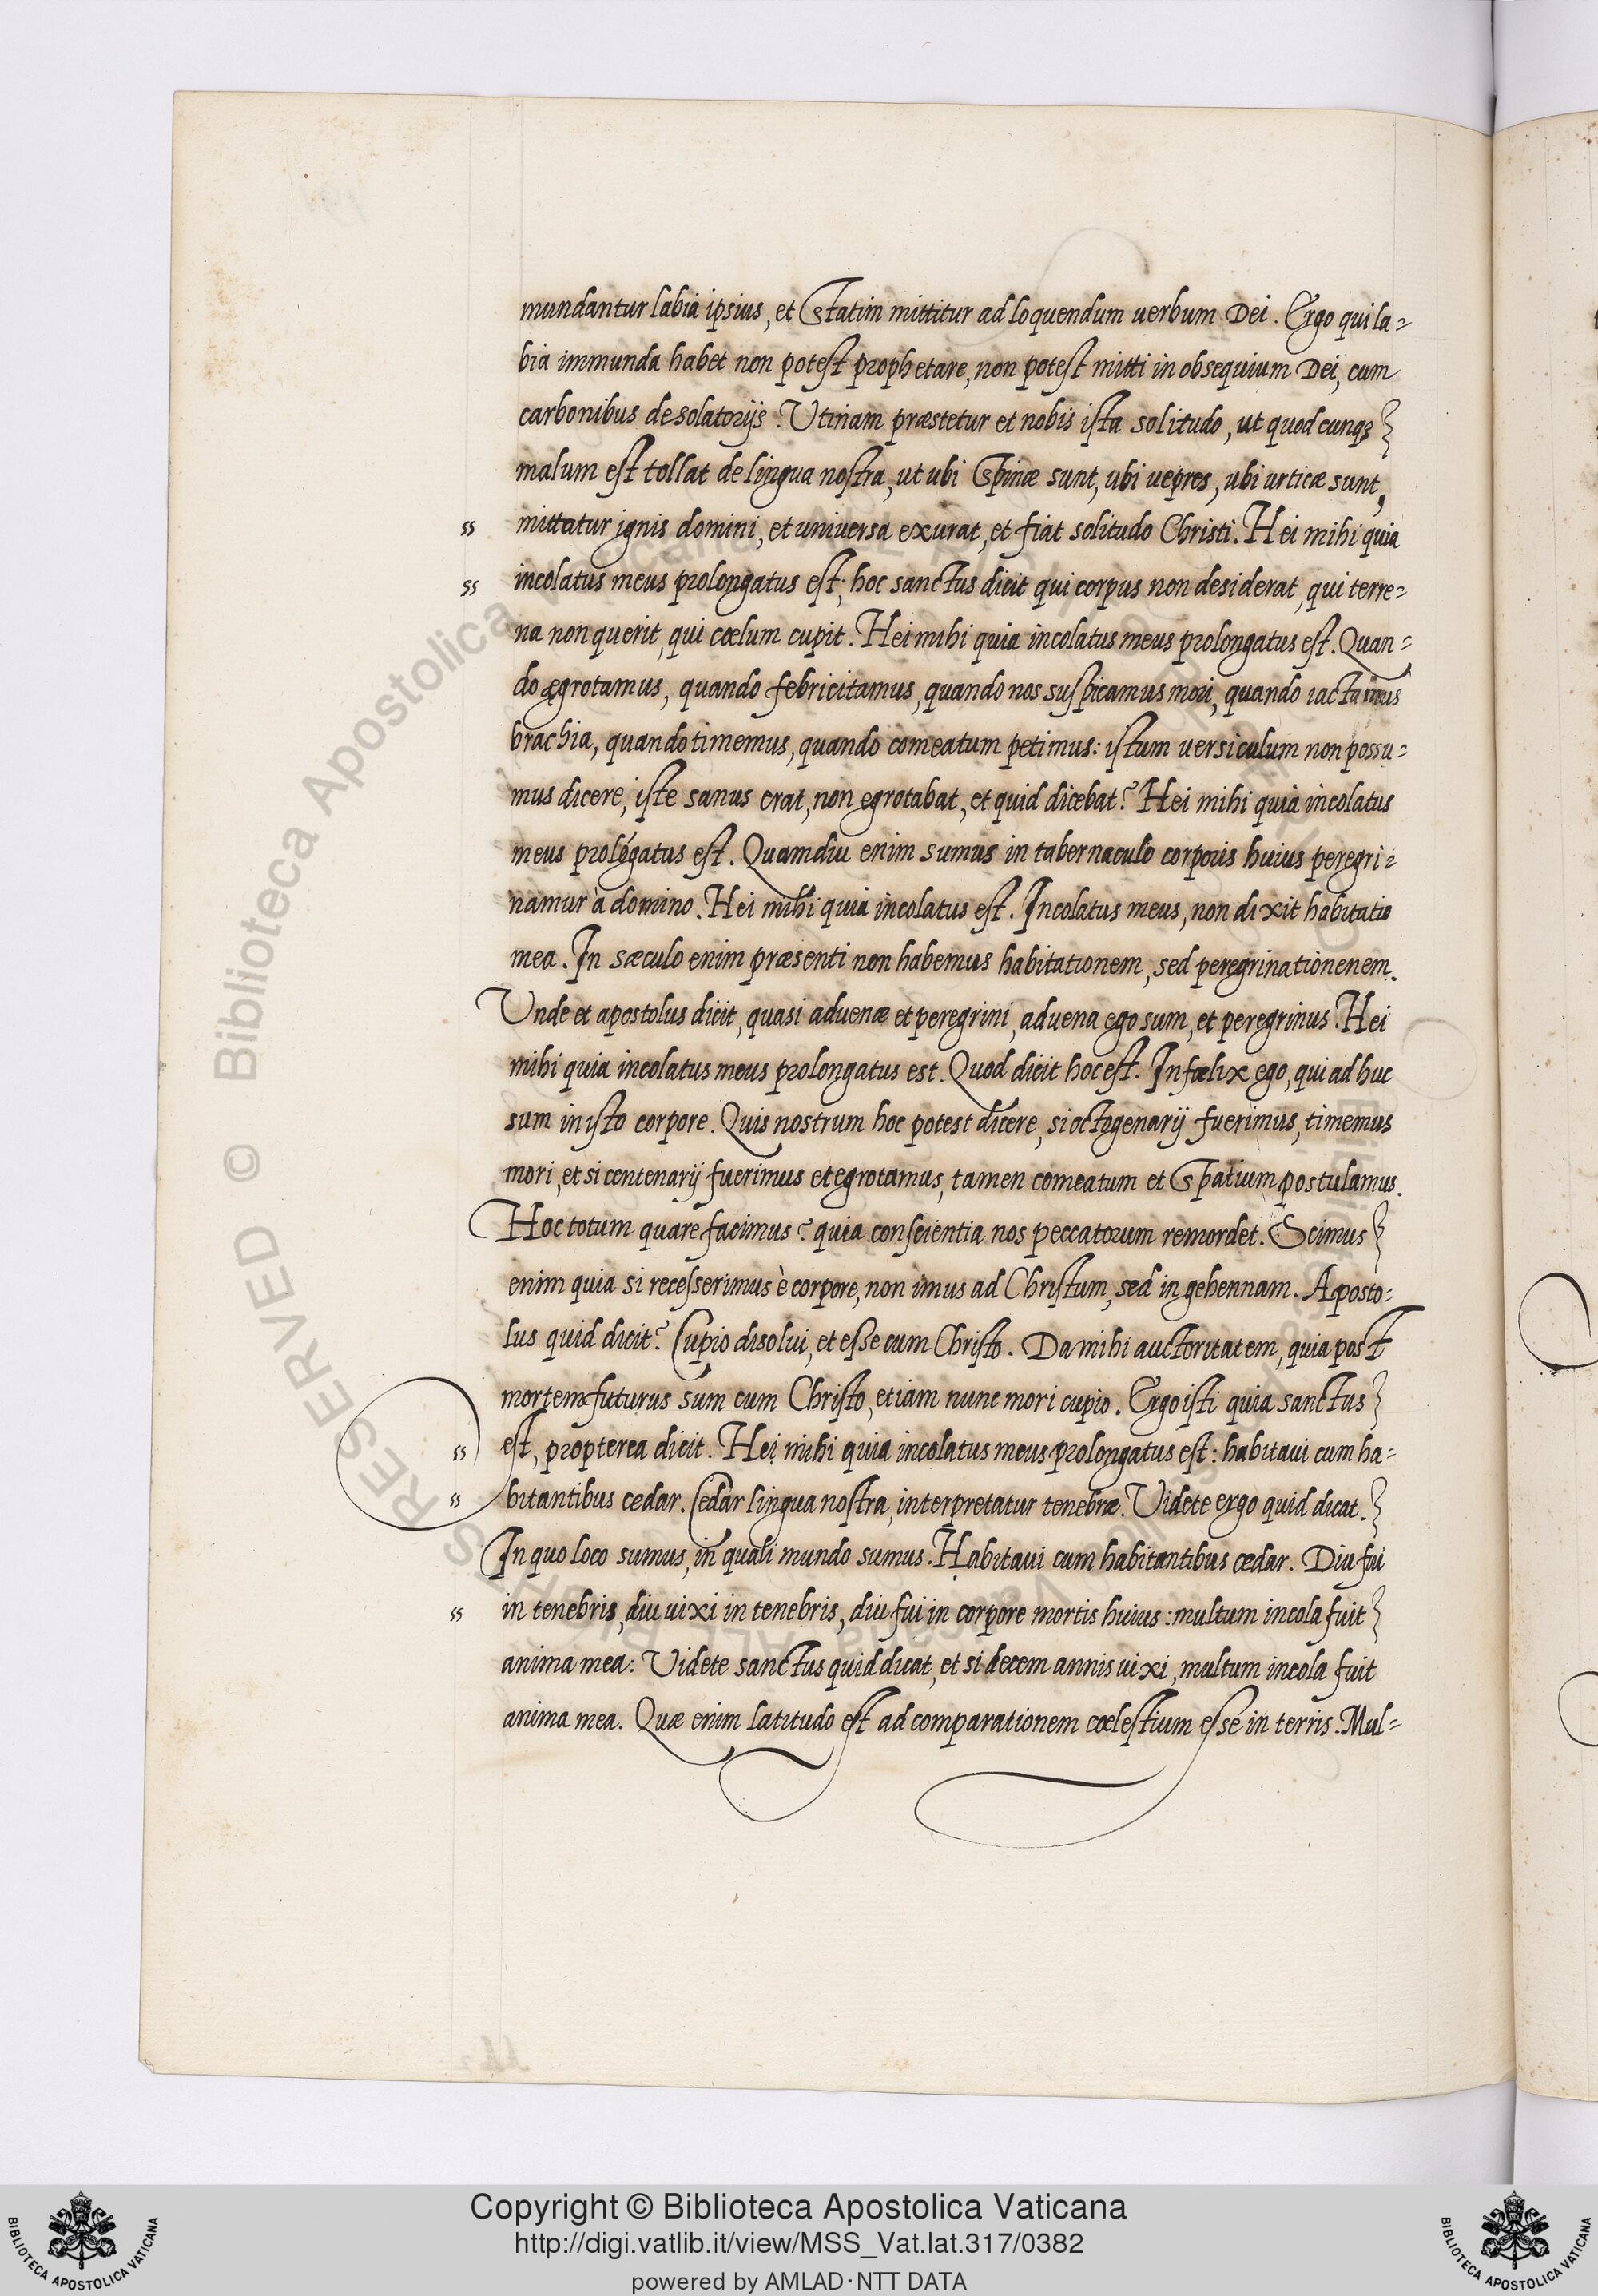 mundantur labia ipsius, et statim mittitur ad loquendum uerbum Dei. Ergo qui la=
bia immunda habet non potest prophetare, non potest mitti in obsequium Dei, cum
carbonibus desolatorijs. Vtinam præstetur et nobis ista solitudo, ut quodcunqꝫ
malum est tollat de lingua nostra, ut ubi spinæ sunt, ubi uepres, ubi urticæ sunt,
ss mittatur ignis domini, et uniuersa exurat, et fiat solitudo Christi. Hei mihi quia
ss incolatus meus prolongatus est; hoc sanctus dicit qui corpus non desiderat, qui terre=
na non querit, qui cœlum cupit. Hei mihi quia incolatus meus prolongatus est. Quan=
do ęgrotamus, quando febricitamus, quando nos suspicamus mori, quando iactamus
brachia, quando timemus, quando comeatum petimus: istum uersiculum non possu=
mus dicere, iste sanus erat, non egrotabat, et quid dicebat? Hei mihi quia incolatus
meus prolõgatus est. Quamdiu enim sumus in tabernaculo corporis huius peregri=
namur à domino. Hei mihi quia incolatus est. Incolatus meus, non dixit habitatio
mea. In sæculo enim præsenti non habemus habitationem, sed peregrinationenem.
Vnde et apostolus dicit, quasi aduenæ et peregrini, aduena ego sum, et peregrinus. Hei
mihi quia incolatus meus prolongatus est. Quod dicit hoc est. Infœlix ego, qui ad huc
sum in isto corpore. Quis nostrum hoc potest dicere, si octogenarij fuerimus, timemus
mori, et si centenarij fuerimus et egrotamus, tamen comeatum et spatium postulamus.
Hoc totum quare facimus? quia conscientia nos peccatorum remordet. Scimus
enim quia si recesserimus è corpore, non imus ad Christum, sed in gehennam. Aposto=
lus quid dicit? Cupio disolui, et esse cum Christo. Da mihi auctoritatem, quia post
mortem futurus sum cum Christo, etiam nunc mori cupio. Ergo isti quia sanctus
ss est, propterea dicit. Hei mihi quia incolatus meus prolongatus est: habitaui cum ha=
ss bitantibus cedar. Cedar lingua nostra, interpretatur tenebræ. Videte ergo quid dicat.
In quo loco sumus, in quali mundo sumus. Habitaui cum habitantibus cedar. Diu fui
ss in tenebris, diu uixi in tenebris, diu fui in corpore mortis huius: multum incola fuit
anima mea: Videte sanctus quid dicat, et si decem annis uixi, multum incola fuit
anima mea. Quæ enim latitudo est ad comparationem cœlestium esse in terris. Mul=
Copyright © Biblioteca Apostolica Vaticana
http://digi.vatlib.it/view/MSS_Vat.lat.317/0382
powered by AMLAD·NTT DATA
BIBLIOTECA APOSTOLICA VATICANA
BIBLIOTECA APOSTOLICA VATICANA